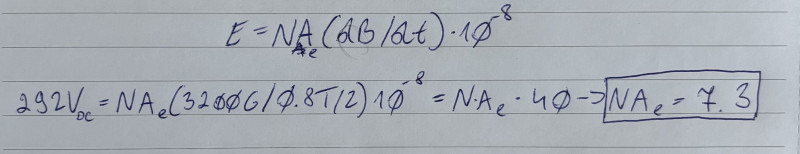 E = NA_e (dB/dt) · 10^-8
292V_DC = NA_e (3200G/0.8T/2) 10^-8 = N·A_e · 40 → NA_e = 7.3